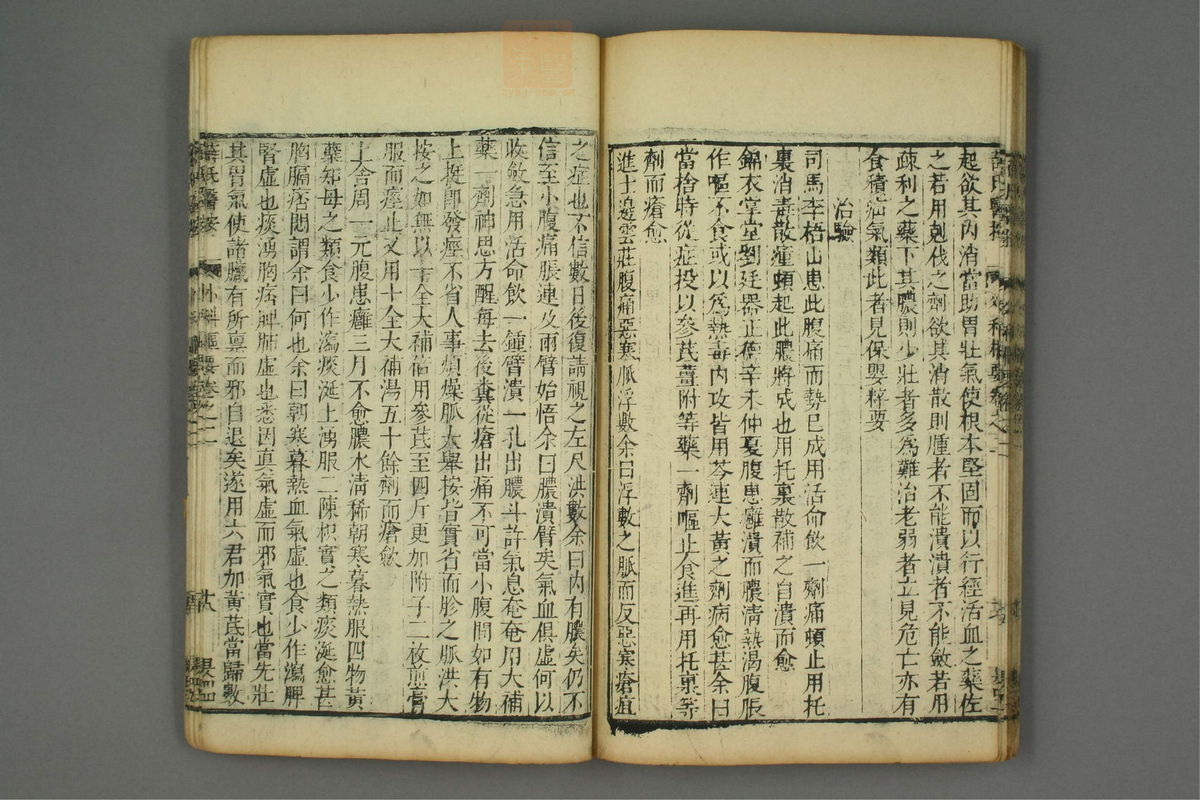 起欲其內消當助胃壯氣使根本堅固而以行經活血之藥佐
之若用剋伐之劑欲其消散則腫者不能潰潰者不能斂若用
疎利之藥下其膿則少壯者多爲難治老弱者立見危亡亦有
食積疝氣類此者見保嬰粹要
治驗
司馬李梧山患此腹痛而勢已成用活命飲一劑痛頓止用托
裏消毒散瘇頓起此膿將成也用托裏散補之自潰而愈
錦衣掌堂劉廷器正德辛未仲夏腹患癰潰而膿清熱渴腹脹
作嘔不食或以爲熱毒內攻皆用芩連大黃之劑病愈甚余曰
當捨時從症投以參芪薑附等藥一劑嘔止食進再用托裏等
劑而瘡愈
進士邊雲莊腹痛惡寒脈浮數余曰浮數之脈而反惡寒瘡疽
之症也不信數日後復請視之左尺洪數余曰內有膿矣仍不
信至小腹痛脹連及兩臂始悟余曰膿潰臂矣氣血俱虛何以
收斂急用活命飲一鍾臂潰一孔出膿斗許氣息奄奄用大補
藥一劑神思方醒每去後糞從瘡出痛不可當小腹間如有物
上挺即發痙不省人事煩燥脈大舉按皆實省而胗之脈洪大
按之如無以十全大補倍用參芪至四斤更加附子二枚煎膏
服而痙止又用十全大補湯五十餘劑而瘡斂
上舍周一元腹患癰三月不愈膿水清稀朝寒暮熱服四物黃
藥知母之類食少作瀉痰涎上湧服二陳枳實之類痰涎愈甚
胸膈痞悶謂余曰何也余曰朝寒暮熱血氣虛也食少作瀉脾
腎虛也痰湧胸痞脾肺虛也悉因真氣虛而邪氣實也當先壯
其胃氣使諸臟有所禀而邪自退矣遂用六君加黃芪當歸數
薛氏醫按
外科樞要卷之二